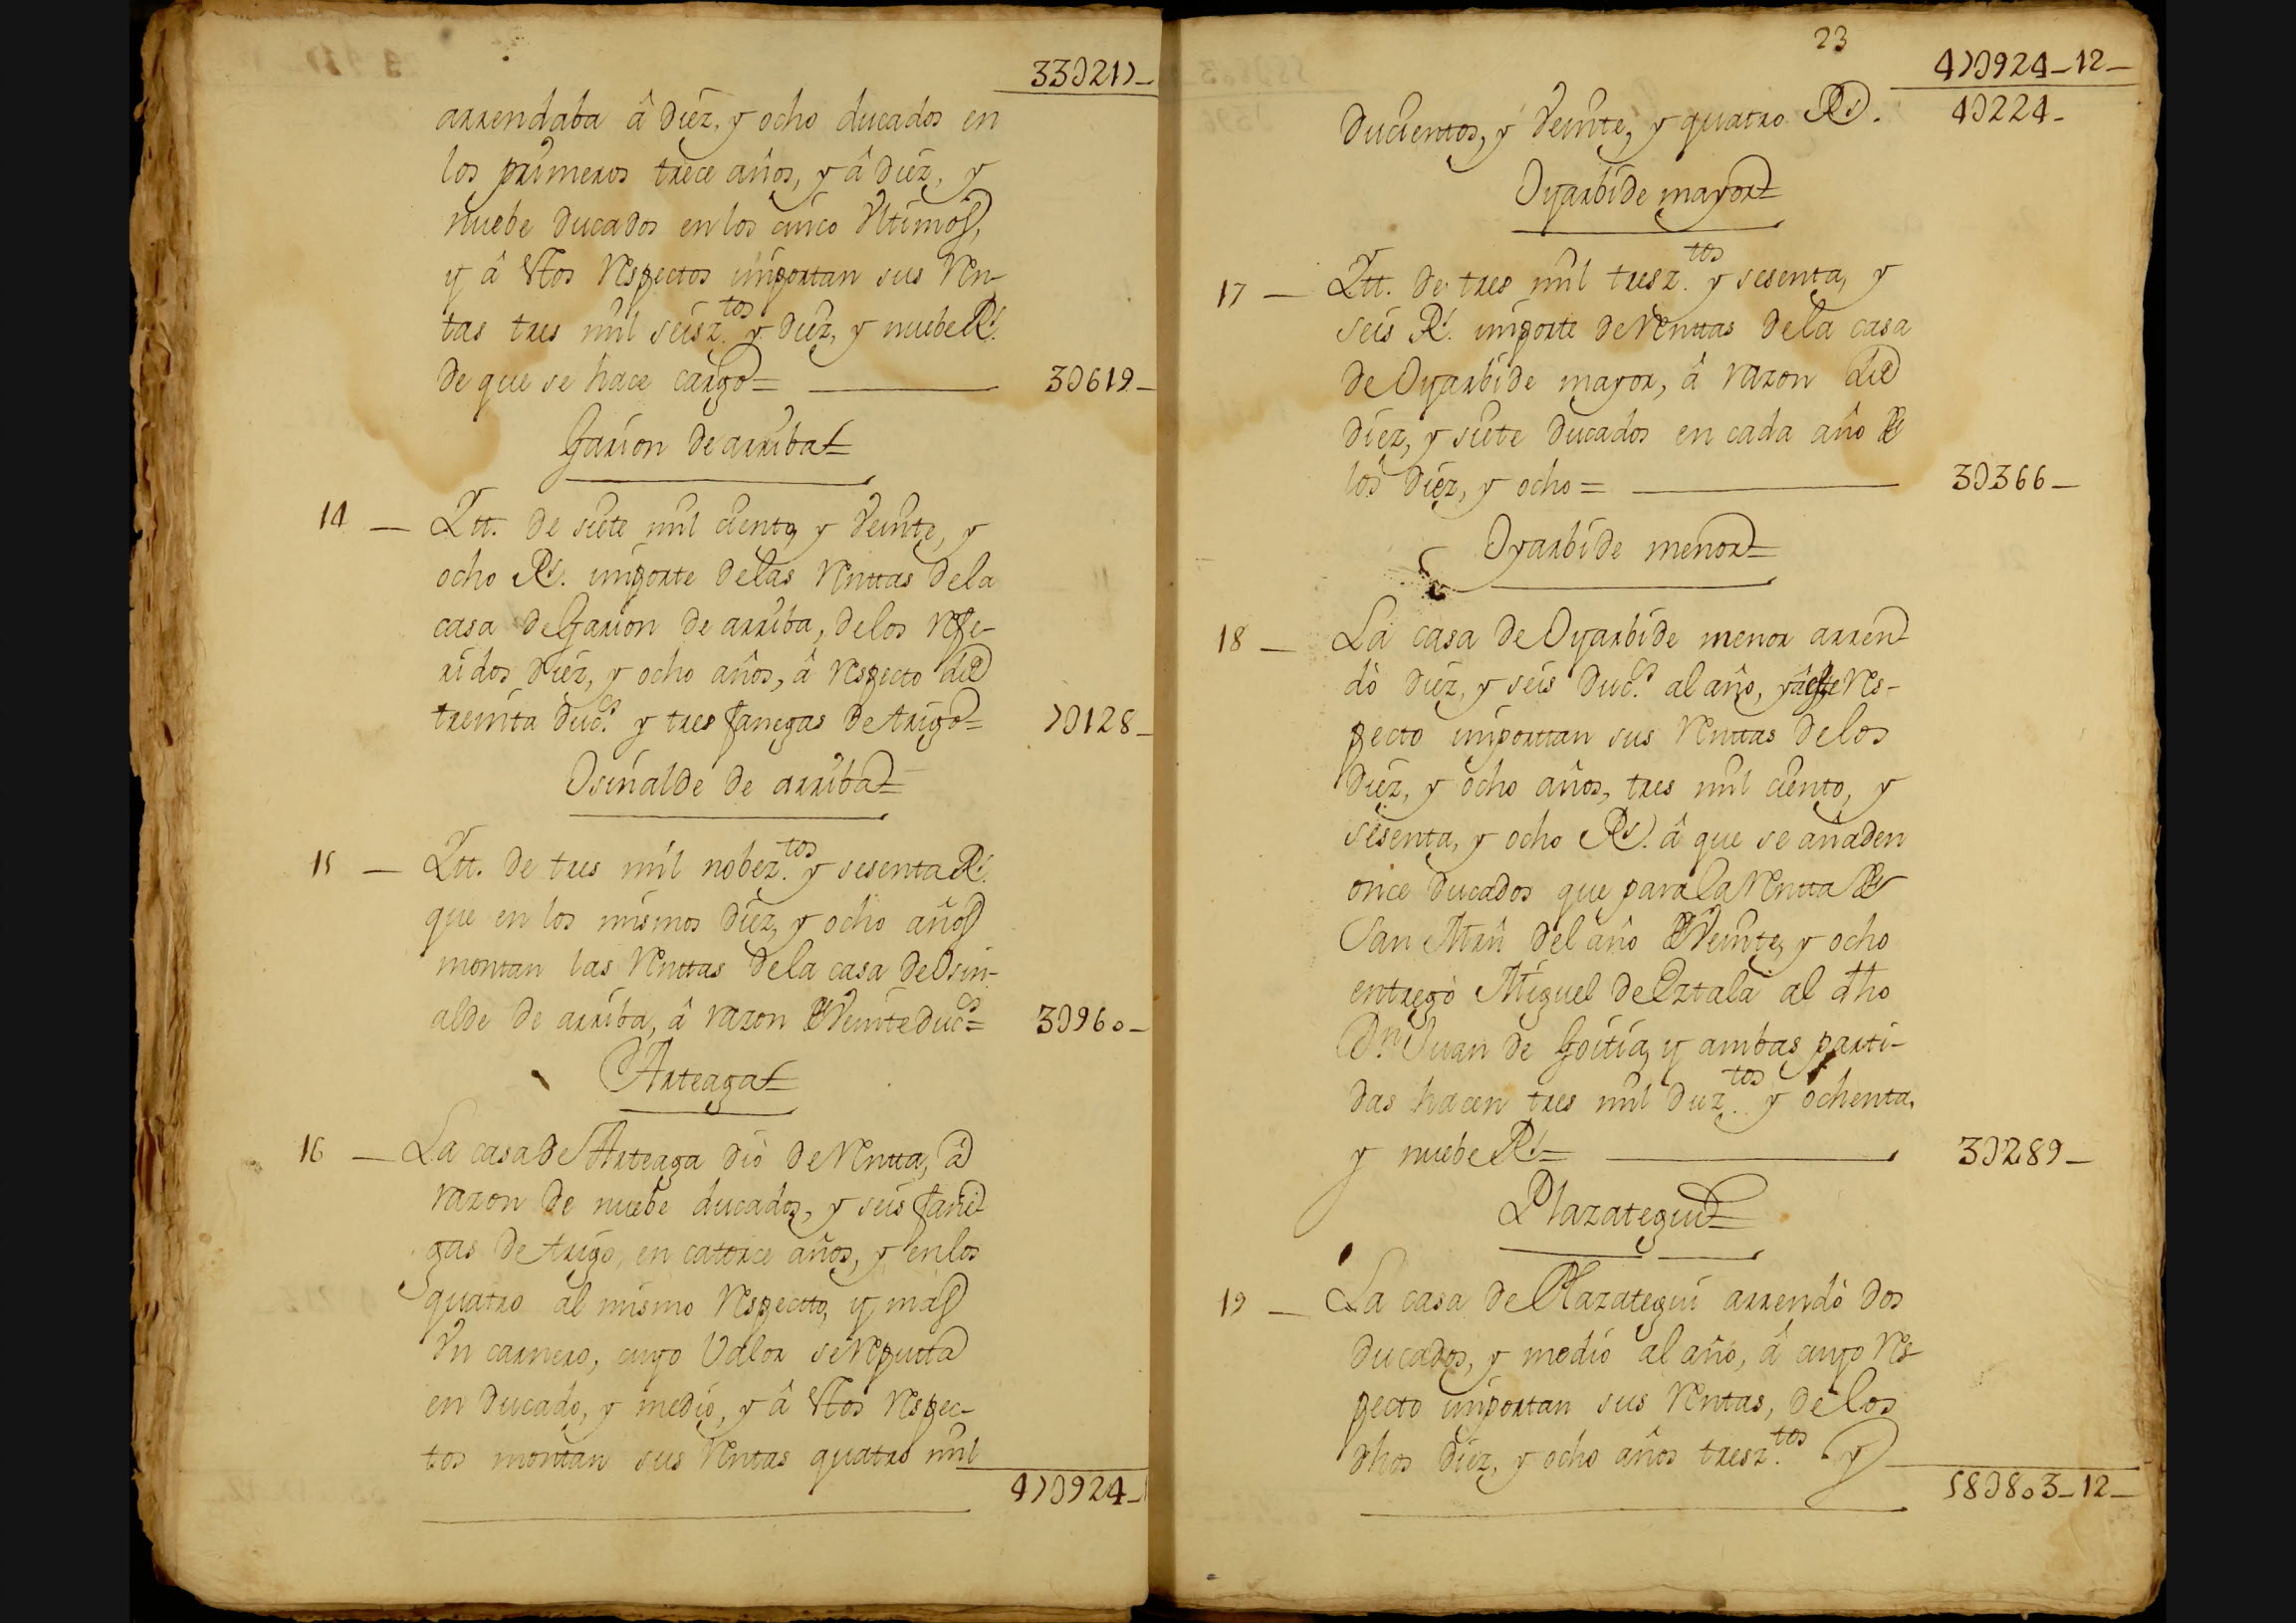 33D217_
arrendaba â Diez, y ocho ducados en
los primeros trece años, y â Diez, y
nuebe Ducados en los cinco Vltimos,
y â Estos Respectos importan sus Ren-
tas tres mil seisz.tos y Diez, y nuebe Rs.
de que se hace cargo= 3D619_
Garion de arriba=
14 _ Ytt. de siete mil ciento, y Veinte, y
ocho Rs. importe de las Renttas de la
casa de Garion de arriba, de los Refe-
ridos Diez, y ocho años, â Respecto de
treinta Duc.s y tres fanegas de trigo= 7D128_
Osinalde de arriba=
15 _ Ytt. de tres mil nobez.tos y sesenta Rs.
que en los mismos Diez, y ocho años
montan las Renttas de la casa de Osin-
alde de arriba, â razon de Veinte duc.s= 3D960_
Arteaga=
16 _ La casa de Arteaga dió de Rentta, â
razon de nuebe ducados, y seis fane-
gas de trigo, en catorce años, y en los
quatro al mismo Respectto, y mas
Vn carnero, cuyo Valor se Reputta
en Ducado, y medio, y â Estos Respec-
tos montan sus Rentas quatro mil
47D924_
23
47D924_12_
Ducientos, y Veinte, y quatro Rs. 4D224_
Oyarbide mayor=
17 _ Ytt. de tres mil tresz.tos y sesenta, y
seis Rs. importe de Renttas de la casa
de Oyarbide mayor, â razon de
Diez, y siete Ducados en cada año de
los Diez, y ocho= 3D366_
Oyarbide menor=
18 _ La casa de Oyarbide menor arren-
dò Diez, y seis Duc.s al año, y â este Res-
pecto importtan sus Renttas de los
Diez, y ocho años, tres mil ciento, y
sesenta, y ocho Rs. â que se añaden
once Ducados que para la Rentta de
San Mrñ del año de Veinte, y ocho
entregò Miguel de Eztala al dho
Dn. Juan de Goitia, y ambas parti-
das hacen tres mil Duz.tos y ochenta,
y nuebe Rs.= 3D289_
Plazategui=
19 _ La casa de Plazategui arrendò dos
Ducados, y medio al año, â cuyo Res-
pecto importan sus Rentas, de los
dhos Diez, y ocho años tresz.tos y
58D803_12_